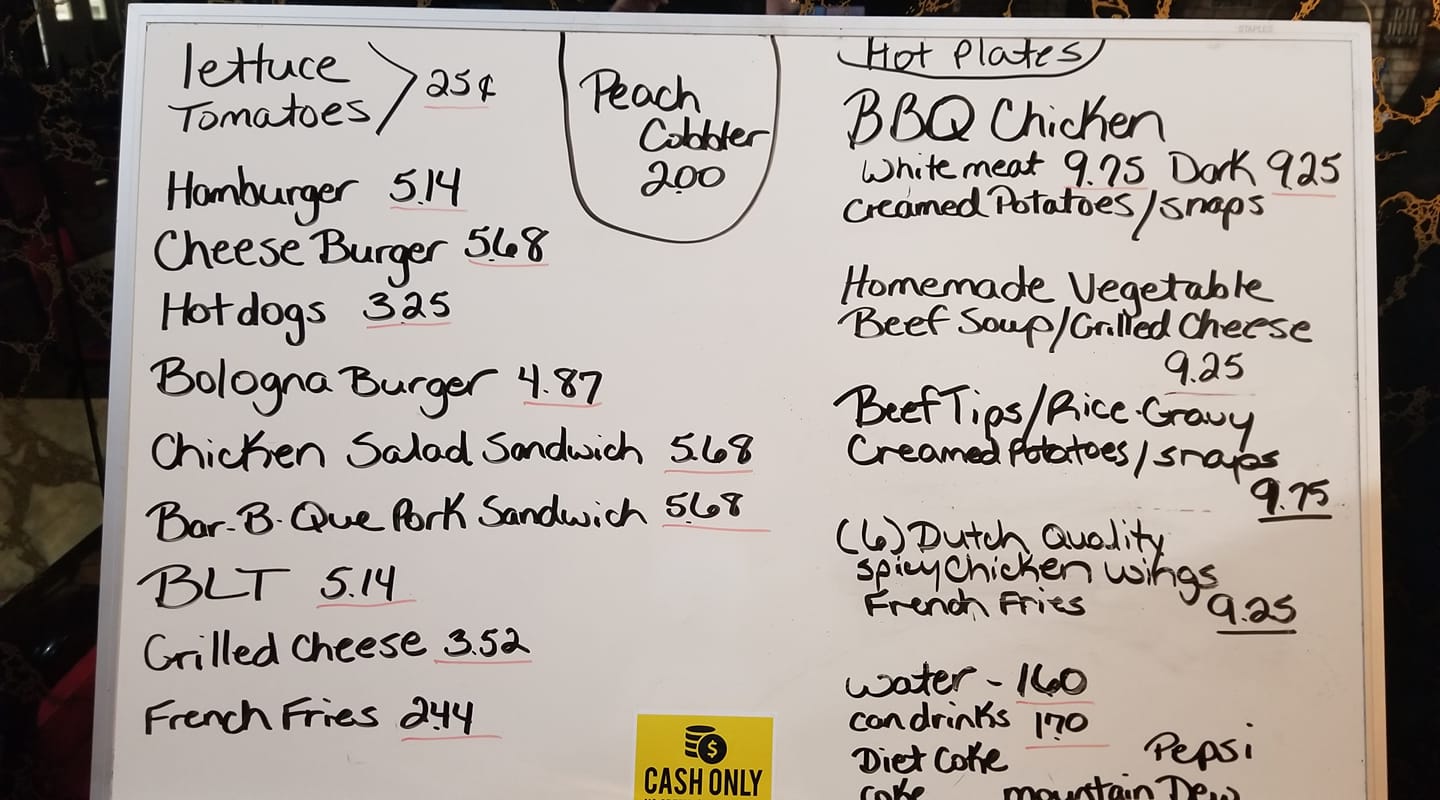 lettuce
Tomatoes > 25¢
Hamburger 5.14
Cheese Burger 5.68
Hotdogs 3.25
Bologna Burger 4.87
Chicken Salad Sandwich 5.68
Bar-B-Que Pork Sandwich 5.68
BLT 5.14
Grilled Cheese 3.52
French Fries 2.44
Peach
Cobbler
2.00
CASH ONLY
Hot Plates
BBQ Chicken
White meat 9.75 Dark 9.25
Creamed Potatoes/snaps
Homemade Vegetable
Beef Soup/Grilled Cheese
9.25
Beef Tips/Rice-Gravy
Creamed Potatoes/snaps
9.75
(6) Dutch Quality
spicy Chicken wings
French Fries
9.25
water - 1.60
can drinks 1.70
Diet Coke Pepsi
coke mountain Dew
STAPLES